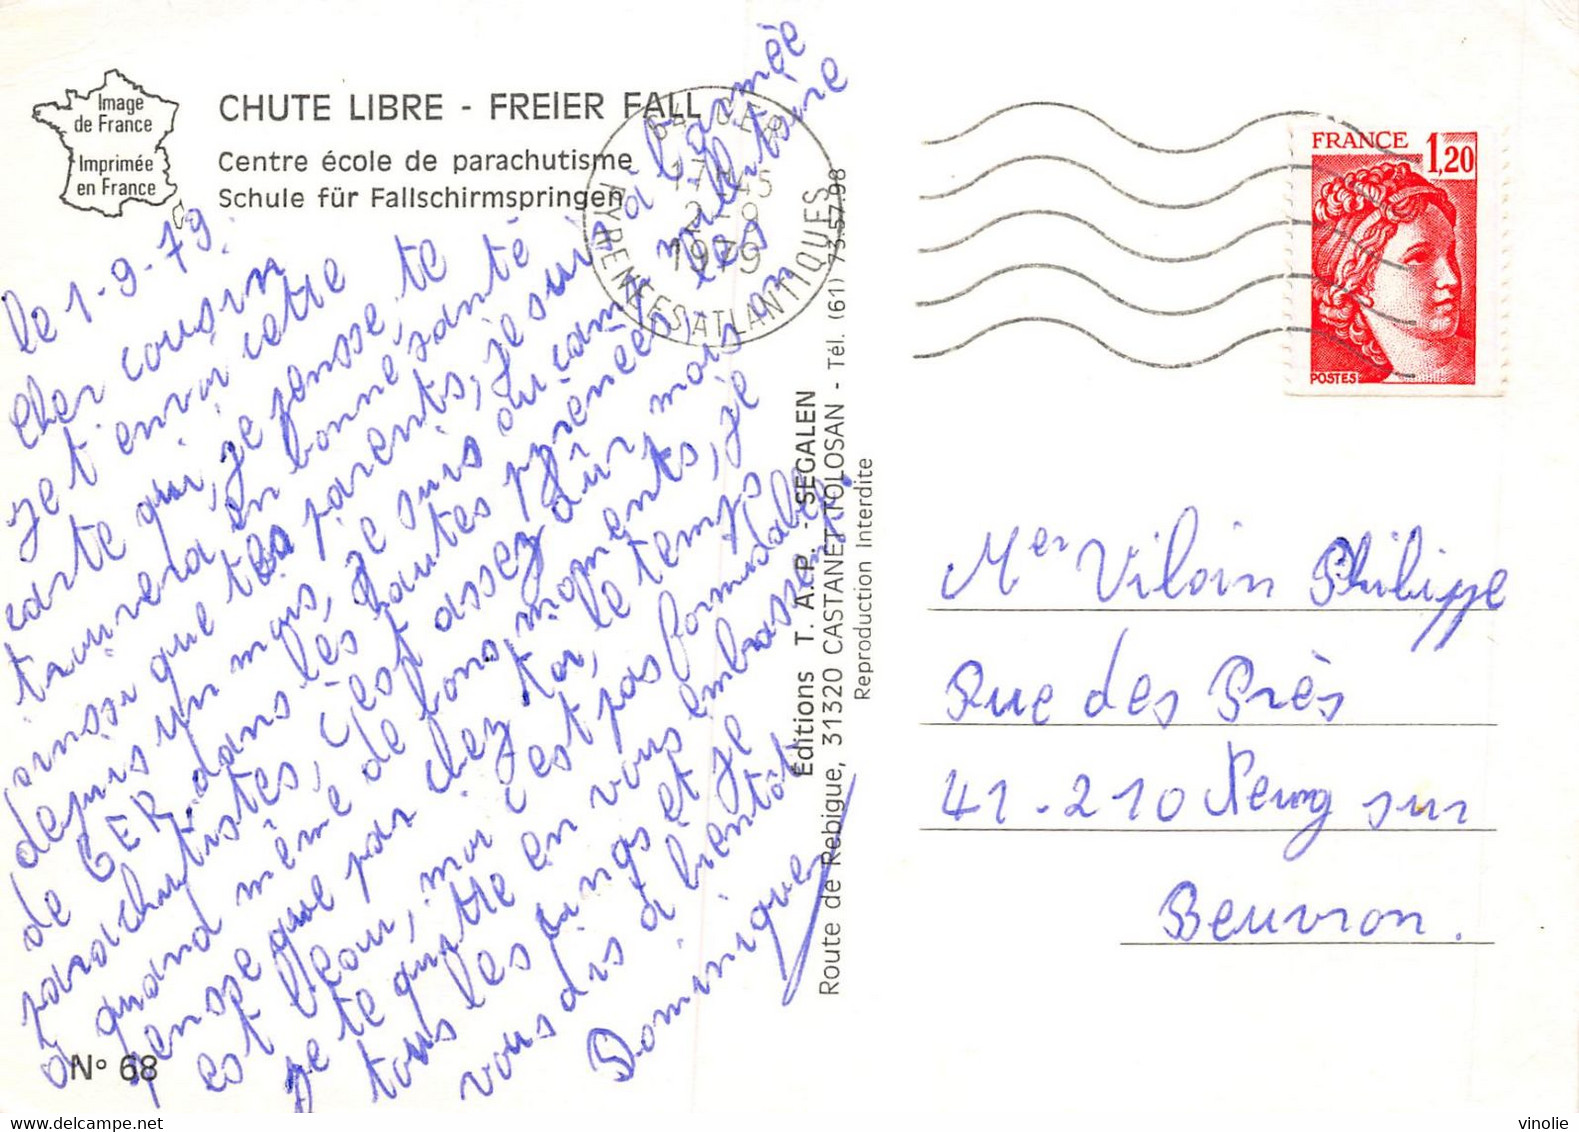 Image
de France
Imprimée
en France
CHUTE LIBRE - FREIER FALL
Centre école de parachutisme
Schule für Fallschirmspringen
64 GER
17H45
2-9
1979
PYRENEES ATLANTIQUES
FRANCE
1,20
POSTES
le 1-9-79.
Cher cousin
je t'envoi cette
carte qui, je pensse, te
trouvera en bonne santé
ainssi que tes parents, je suis à l'armée
depuis un mois, je suis au camp militaire
de GER, dans les hautes pyrénées, les
parachutistes, c'est assez dûr, mais on
a quand même de bons moments, je
pensse que par chez toi, le temps
est beau, moi c'est pas formidable,
je te quitte en vous embrassent
tous les cings et je
vous dis à bientôt
Dominique
N° 68
Éditions T. A. P. - SEGALEN
Route de Rebigue, 31320 CASTANET-TOLOSAN - Tél. (61) 73.57.98
Reproduction Interdite
Mer Viloin Philippe
Rue des Près
41-210 Neung sur
Beuvron.
vinolie